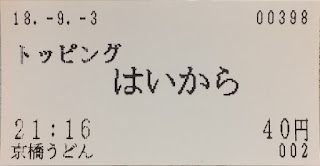 18.-9.-3 00398
トッピング
はいから
21:16 40円
京橋うどん 002